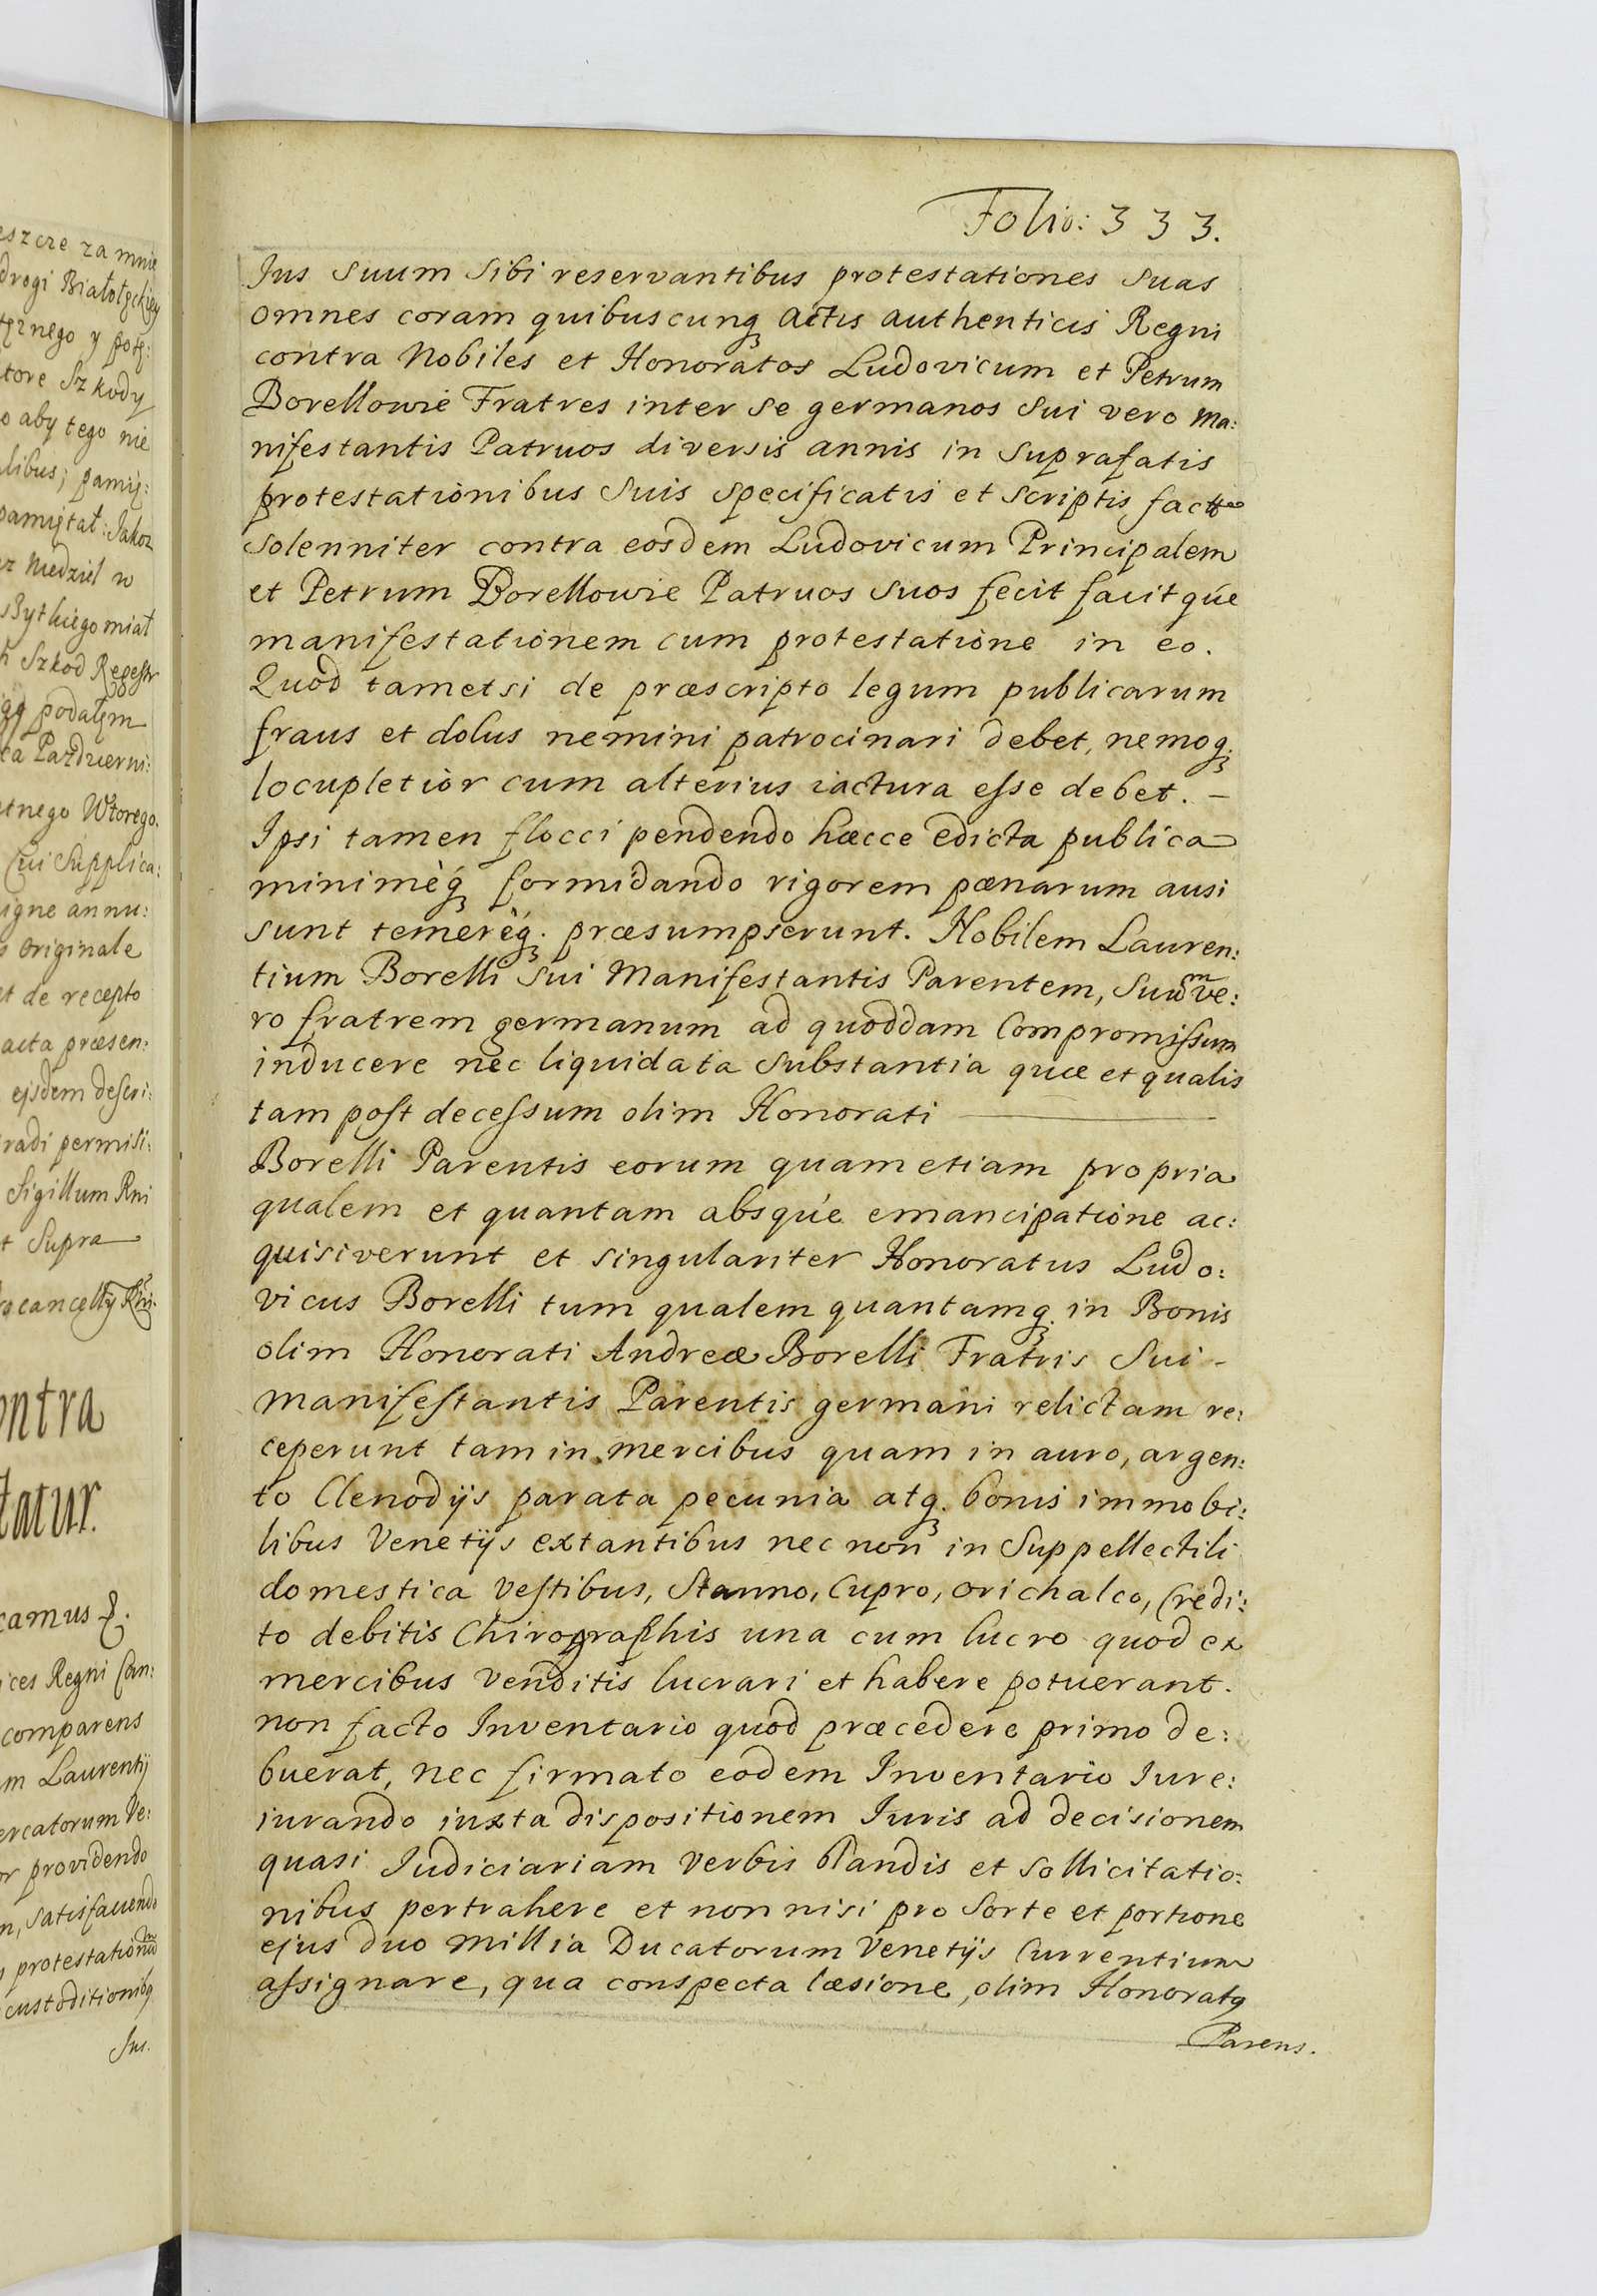 eszcze za mnie
drogi Białołęckiey
tore Szkody
o aby tego nie
libus; pamię:
pamiętał: Jakoz
miał
h Szkod Regestr
podałem
ca Pazdzierni:
etnego Wtorego.
Cui Supplica:
igne annu:
s originale
et de recepto
acta præsen:
ejsdem descri:
radi permisi:
Sigillum Rni
t Supra
ontra
tatur.
camus
ices Regni Can:
comparens
m Laurentij
ercatorum Ve:
or providendo
n, satisfaciendo
protestationũ
custoditionibq
Jus.
Folio: 333.
Jus suum sibi reservantibus protestationes suas
omnes coram quibuscunq; actis authenticis Regni
contra Nobiles et Honoratos Ludovicum et Petrum
Borellowie Fratres inter se germanos sui vero Ma:
nifestantis Patruos diversis annis in suprafatis
protestationibus suis specificatis et scriptis factas
solenniter contra eosdem Ludovicum Principalem
et Petrum Borellowie Patruos suos fecit facitqúe
manifestationem cum protestatione in eo.
Quod tametsi de præscripto legum publicarum
fraus et dolus nemini patrocinari debet, nemoq;
locupletior cum alterius iactura esse debet. –
Ipsi tamen flocci pendendo hæcce edicta publica
minimèq; formidando rigorem pænarum ausi
sunt temerèq; præsumpserunt. Nobilem Lauren:
tium Borelli sui Manifestantis Parentem, Suũm ve:
ro fratrem germanum ad quoddam Compromissum
inducere nec liquidata substantia quæ et qualis
tam post decessum olim Honorati
Borelli Parentis eorum quam etiam propria
qualem et quantam absqúe emancipatione ac:
quisiverunt et singulariter Honoratus Ludo:
vicus Borelli tum qualem quantamq; in Bonis
olim Honorati Andreæ Borelli Fratris Sui –
manifestantis Parentis germani relictam re:
ceperunt tam in mercibus quam in auro, argen:
to Clenodijs parata pecunia atq; bonis immobi:
libus Venetijs extantibus nec non in Suppellectili
domestica vestibus, Stanno, Cupro, orichalco, Credi:
to debitis Chirographis una cum lucro quod ex
mercibus venditis lucrari et habere potuerant.
non facto Inventario quod præcedere primo de:
buerat, nec firmato eodem Inventario Jure:
iurando iuxta dispositionem Juris ad decisionem
quasi Judiciariam verbis blandis et sollicitatio:
nibus pertrahere et non nisi pro Sorte et portione
ejus duo Millia Ducatorum Venetijs Currentium
assignare, qua conspecta læsione, olim Honoratq
Parens.